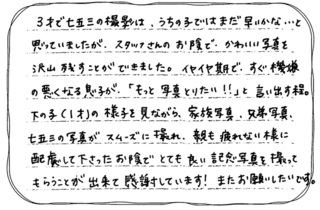 3才で七五三の撮影は、うちの子ではまだ早いかな…と
思っていましたが、スタッフさんのお陰で、かわいい写真を
沢山残すことができました。イヤイヤ期で、すぐ機嫌
の悪くなる息子が、「もっと写真とりたい!!」と言い出す程。
下の子(1才)の様子を見ながら、家族写真、兄弟写真、
七五三の写真がスムーズに撮れ、親も疲れない様に
配慮して下さったお陰でとても良い記念写真を撮って
もらうことが出来て感謝しています!またお願いしたいです。